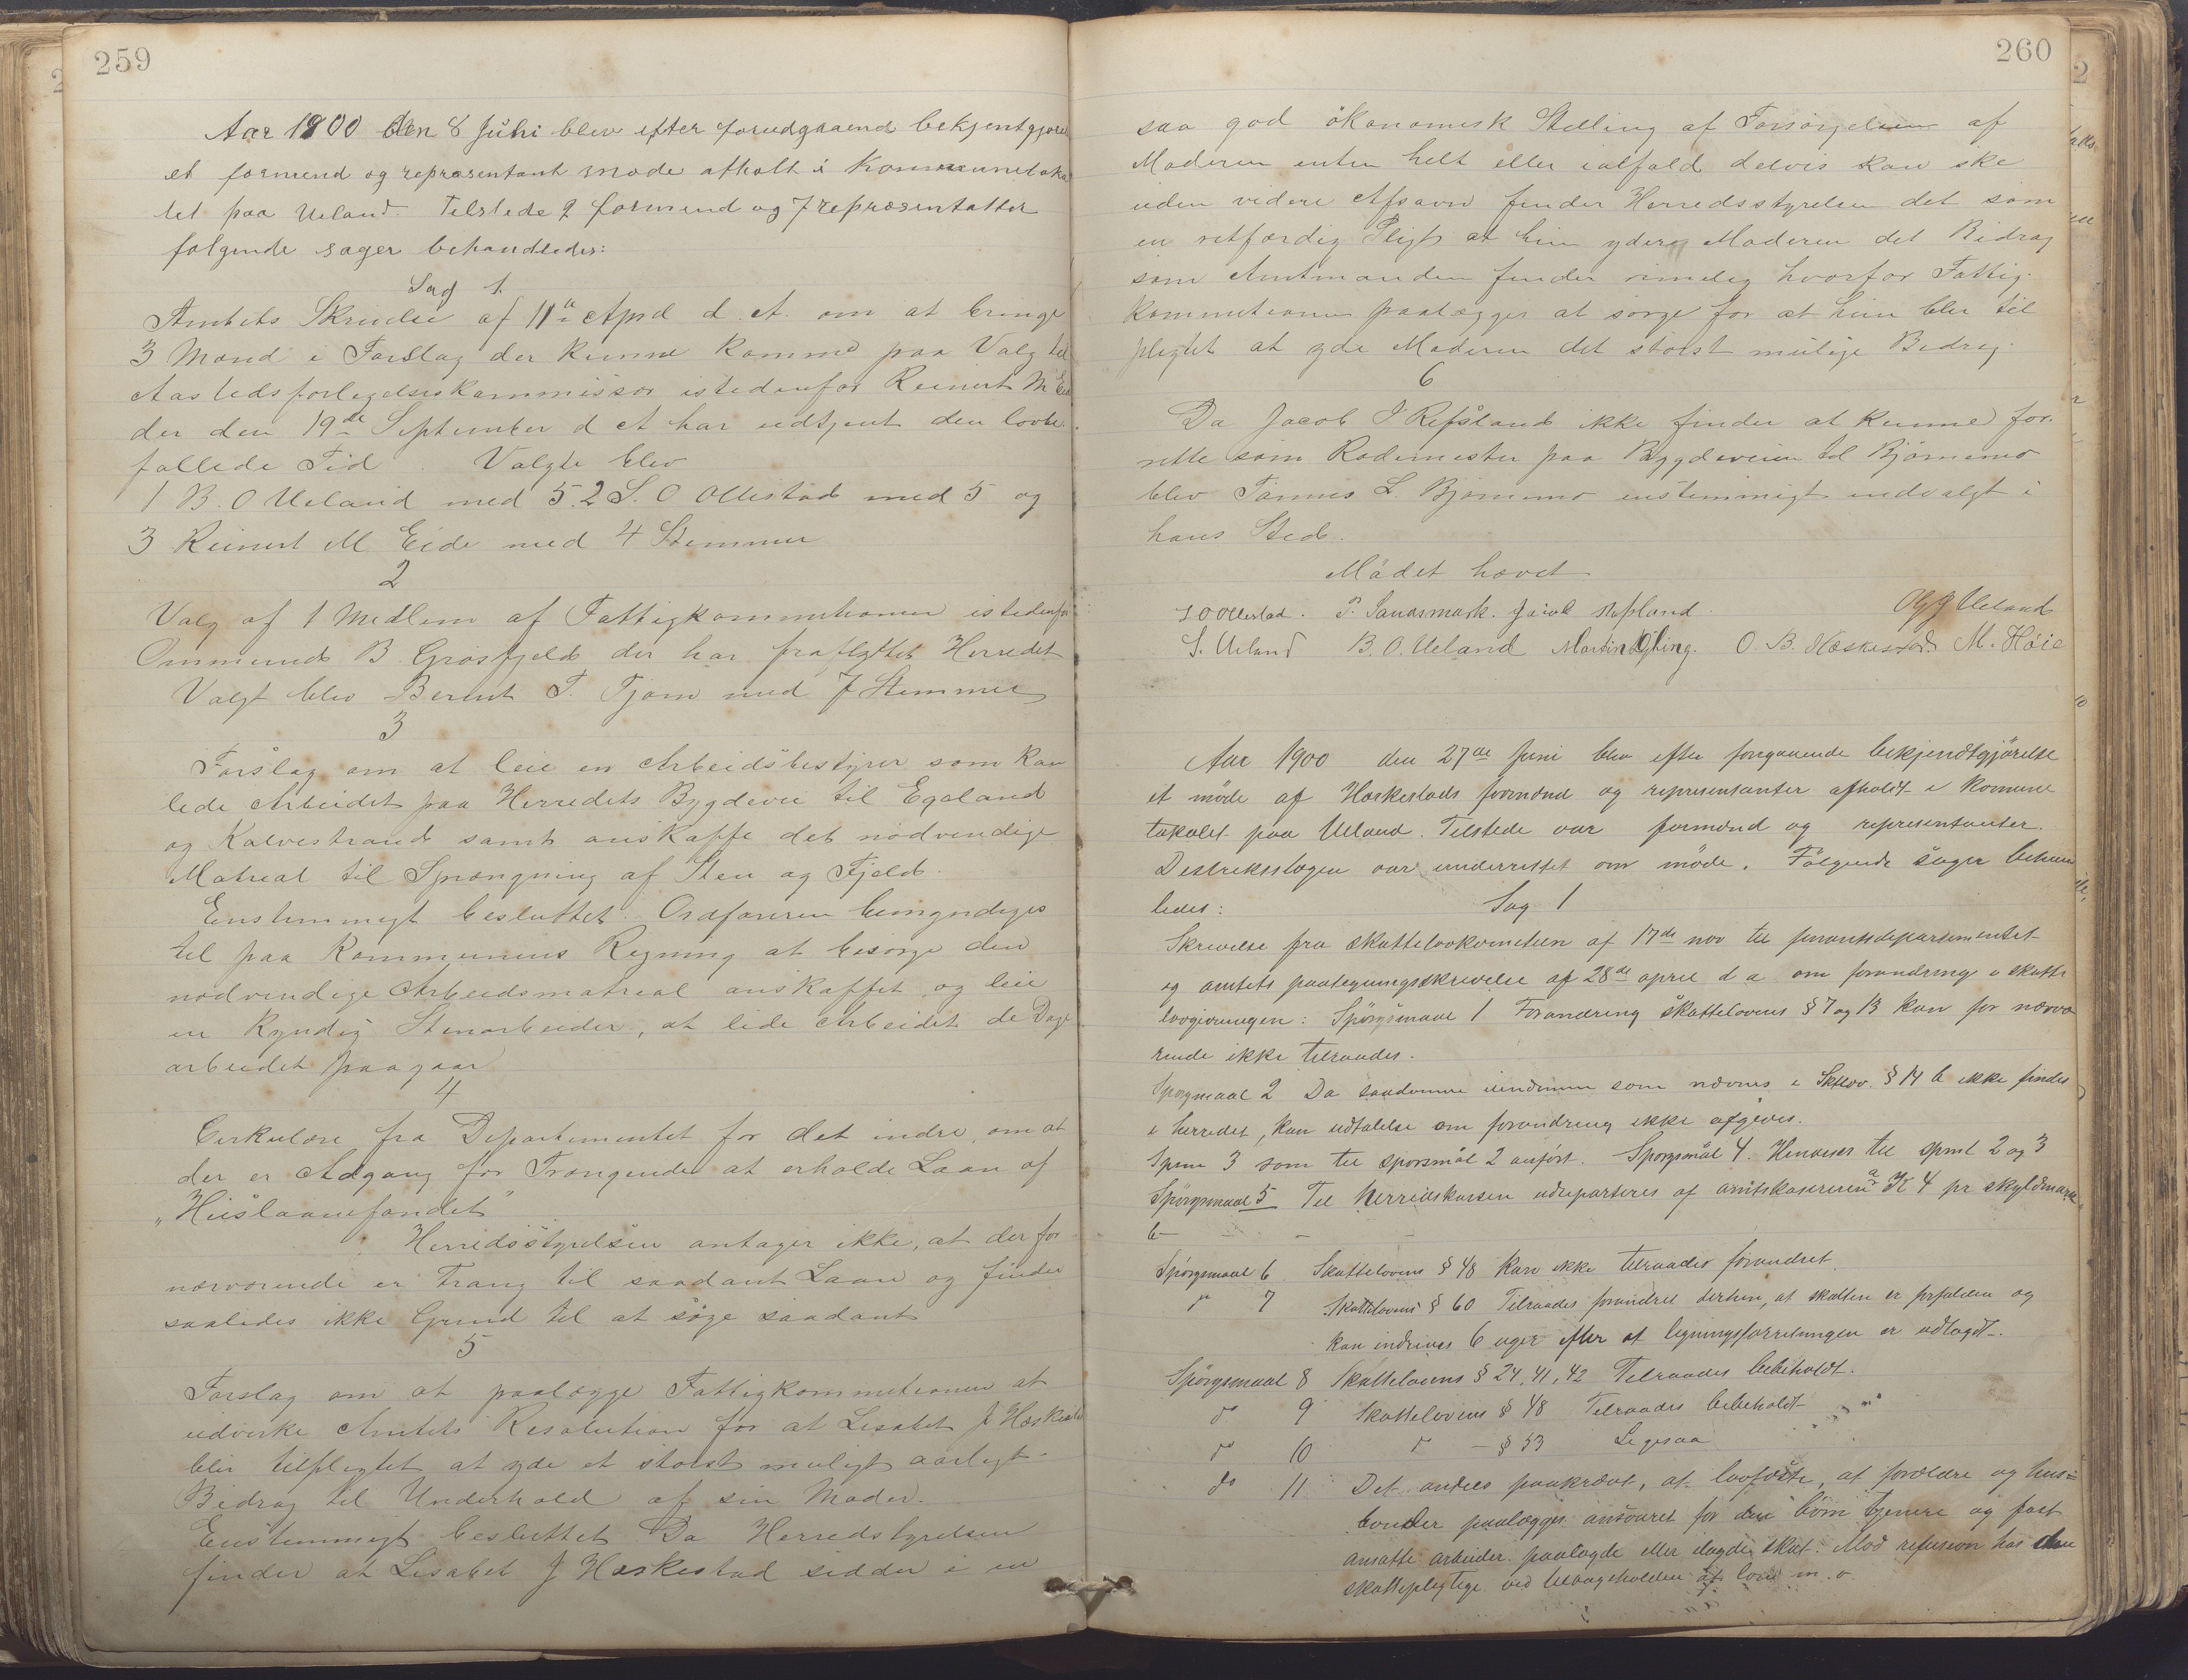 259
Aar 1900 den 8 Juni blev efter forudgaaend bekjentgjørel
et formend og repræsentant møde afholt i Kommuneloka
let paa Ueland. Tilstede 2 formend og 7 repræsentatter
følgende sager behandledes:
Sag 1.
Amtets Skrivelse af 11te April d. A. om at bringe
3 Mænd i Forslag der kunne komme paa Valg til
Aastedsforligelseskommissær istedenfor Reinert M Eide
der den 19de September d A har udtjent den lovbe
fallede Tid. Valgte blev
1 B. O Ueland med 5. 2 S. O Ollestad med 5 og
3 Reinert M Eide med 4 Stemmer
2
Valg af 1 Medlem af Fattigkommitionen istedenfor
Ommund B. Grøsfjeld der har fraflyttet Herredet
Valgt blev Berent T. Tjørn med 7 Stemmer
3
Forslag om at leie en Arbeidsbestyrer som kan
lede Arbeidet paa Herredets Bygdevei til Egeland
og Kalvestrand samt anskaffe det nødvendige
Matreal til Sprængning af Sten og Fjeld.
Enstemmigt besluttet. Ordføreren bemyndiges
til paa Kommunens Regning at besørge den
nødvendige Arbeidsmatreal anskaffet og leie
en kyndig Stenarbeider, at lede Arbeidet de Dage
arbeidet paagaar
4
Cirkulære fra Departementet for det indre, om at
der er Adgang for Trængende at erholde Laan af
„Huslaanefondet"
Herredsstyrelsen antager ikke, at der for
nærværende er Trang til saadant Laan og finder
saaledes ikke Grund til at søge saadant
5
Forslag om at paalægge Fattigkommitionen at
udvirke Amtets Resolution for at Lisabet J Hæskestad
blir tilpligtet at yde et størst muligt aarligt
Bidrag til Underhold af sin Moder.
Enstemmigt besluttet Da Herredstyrelsen
finder at Lisabet J Hæskestad sidder i en
260
saa god økonomisk Stilling af Forsørgelsen af
Moderen enten helt eller ialfald delvis kan ske
uden videre Afsavn finder Herredsstyrelsen det som
en retfærdig Pligt at hun yder Moderen det Bidrag
som Amtmanden finder rimelig hvorfor Fattig-
kommitionen paalægges at sørge for at hun blir til
pligtet at yde Moderen det størst mulige Bidrag.
6
Da Jacob J Refsland ikke finder at kunne for-
rette som Rodemester paa Bygdeveien til Bjørnemo
blev Tønnes L. Bjørnemo enstemmigt indvalgt i
hans Sted.
Mødet hævet
S O Ollestad. P. Sandsmark. Jacob Refsland. Ueland
S. Ueland B. O. Ueland Martin O. B. Hæskestad M. Høie
Aar 1900 den 27de Juni blev efter forgaaende bekjendtgjørelse
et møde af Heskestads formænd og representanter afholdt i Komune
lokalet paa Ueland. Tilstede var formænd og representanter.
Destrekslægen var underrettet om møde. Følgende sager behan
ledes: Sag 1
Skrivelse fra skattelovkomiteen af 17de nov til finantsdepartementet
og amtets paategningsskrivelse af 28de april d a om forandring i skatte
lovgivningen: Spørgsmaal 1 Forandring skattelovens § 7 og 13 kan for nærvæ
rende ikke tilraades.
Spørgmaal 2 Da saadanne eiendomme som nævnes i Sktlov. § 14 b ikke findes
i herredet, kan udtalelse om forandring ikke afgives.
Spm 3 som til spørsmål 2 anført. Spørgsmål 4. Henviser til spml 2 og 3
Spørgsmaal 5 Til Herredskassen udreparteres af amtskasereren a K 4 pr skyldmark
6 - - -
Spørgsmaal 6 Skattelovens § 48 kan ikke tilraades forandret.
do 7 Skattelovens § 60 Tilraades forandret derhen, at skatten er forfalden og
kan indrives 6 uger efter at ligningsforretningen er udlagt.
Spørgsmaal 8 Skattelovens § 24, 41, 42 Tilraades bibeholdt.
do 9 Skattelovens § 48 Tilraades bibeholdt
do 10 do - § 53 Ligesaa
do 11 Det ansees paakrævt, at lovfæste, at forældre og hus=
bonder paalægges ansvaret for den børn tjenere og fast
ansatte arbeider paalagde eller ilagde skat. Mod refusion hos den
skattepligtige ved tilbageholden af løn m. v